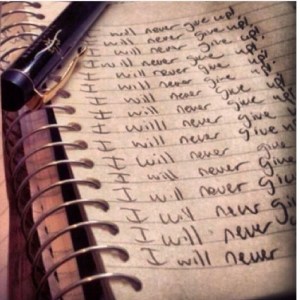 I will never give up!
I will never give up!
I will never give up!
I will never give up!
I will never give up!
I will never give up!
I will never give up!
I will never give up
I will never give
I will never give
I will never give
I will never give
I will never
I will never